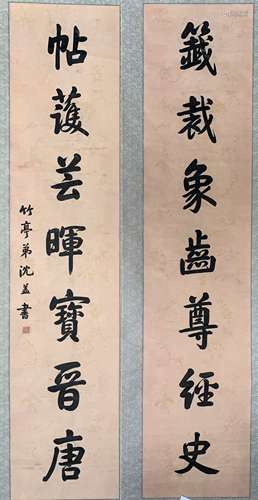 籤裁象齒尊經史
帖護芸暉寶晉唐
竹亭弟沈益書